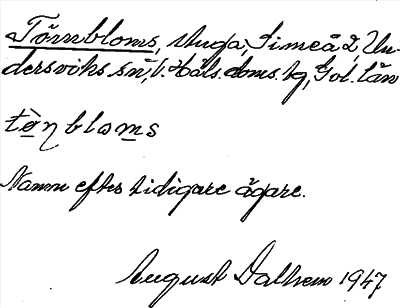 Törnbloms, stuga, Simeå 2, Un-
dersviks sn, V. Häls. doms. hg, Gvl. län
tö̀ṇbloms
Namn efter tidigare ägare.
August Dalhem 1947